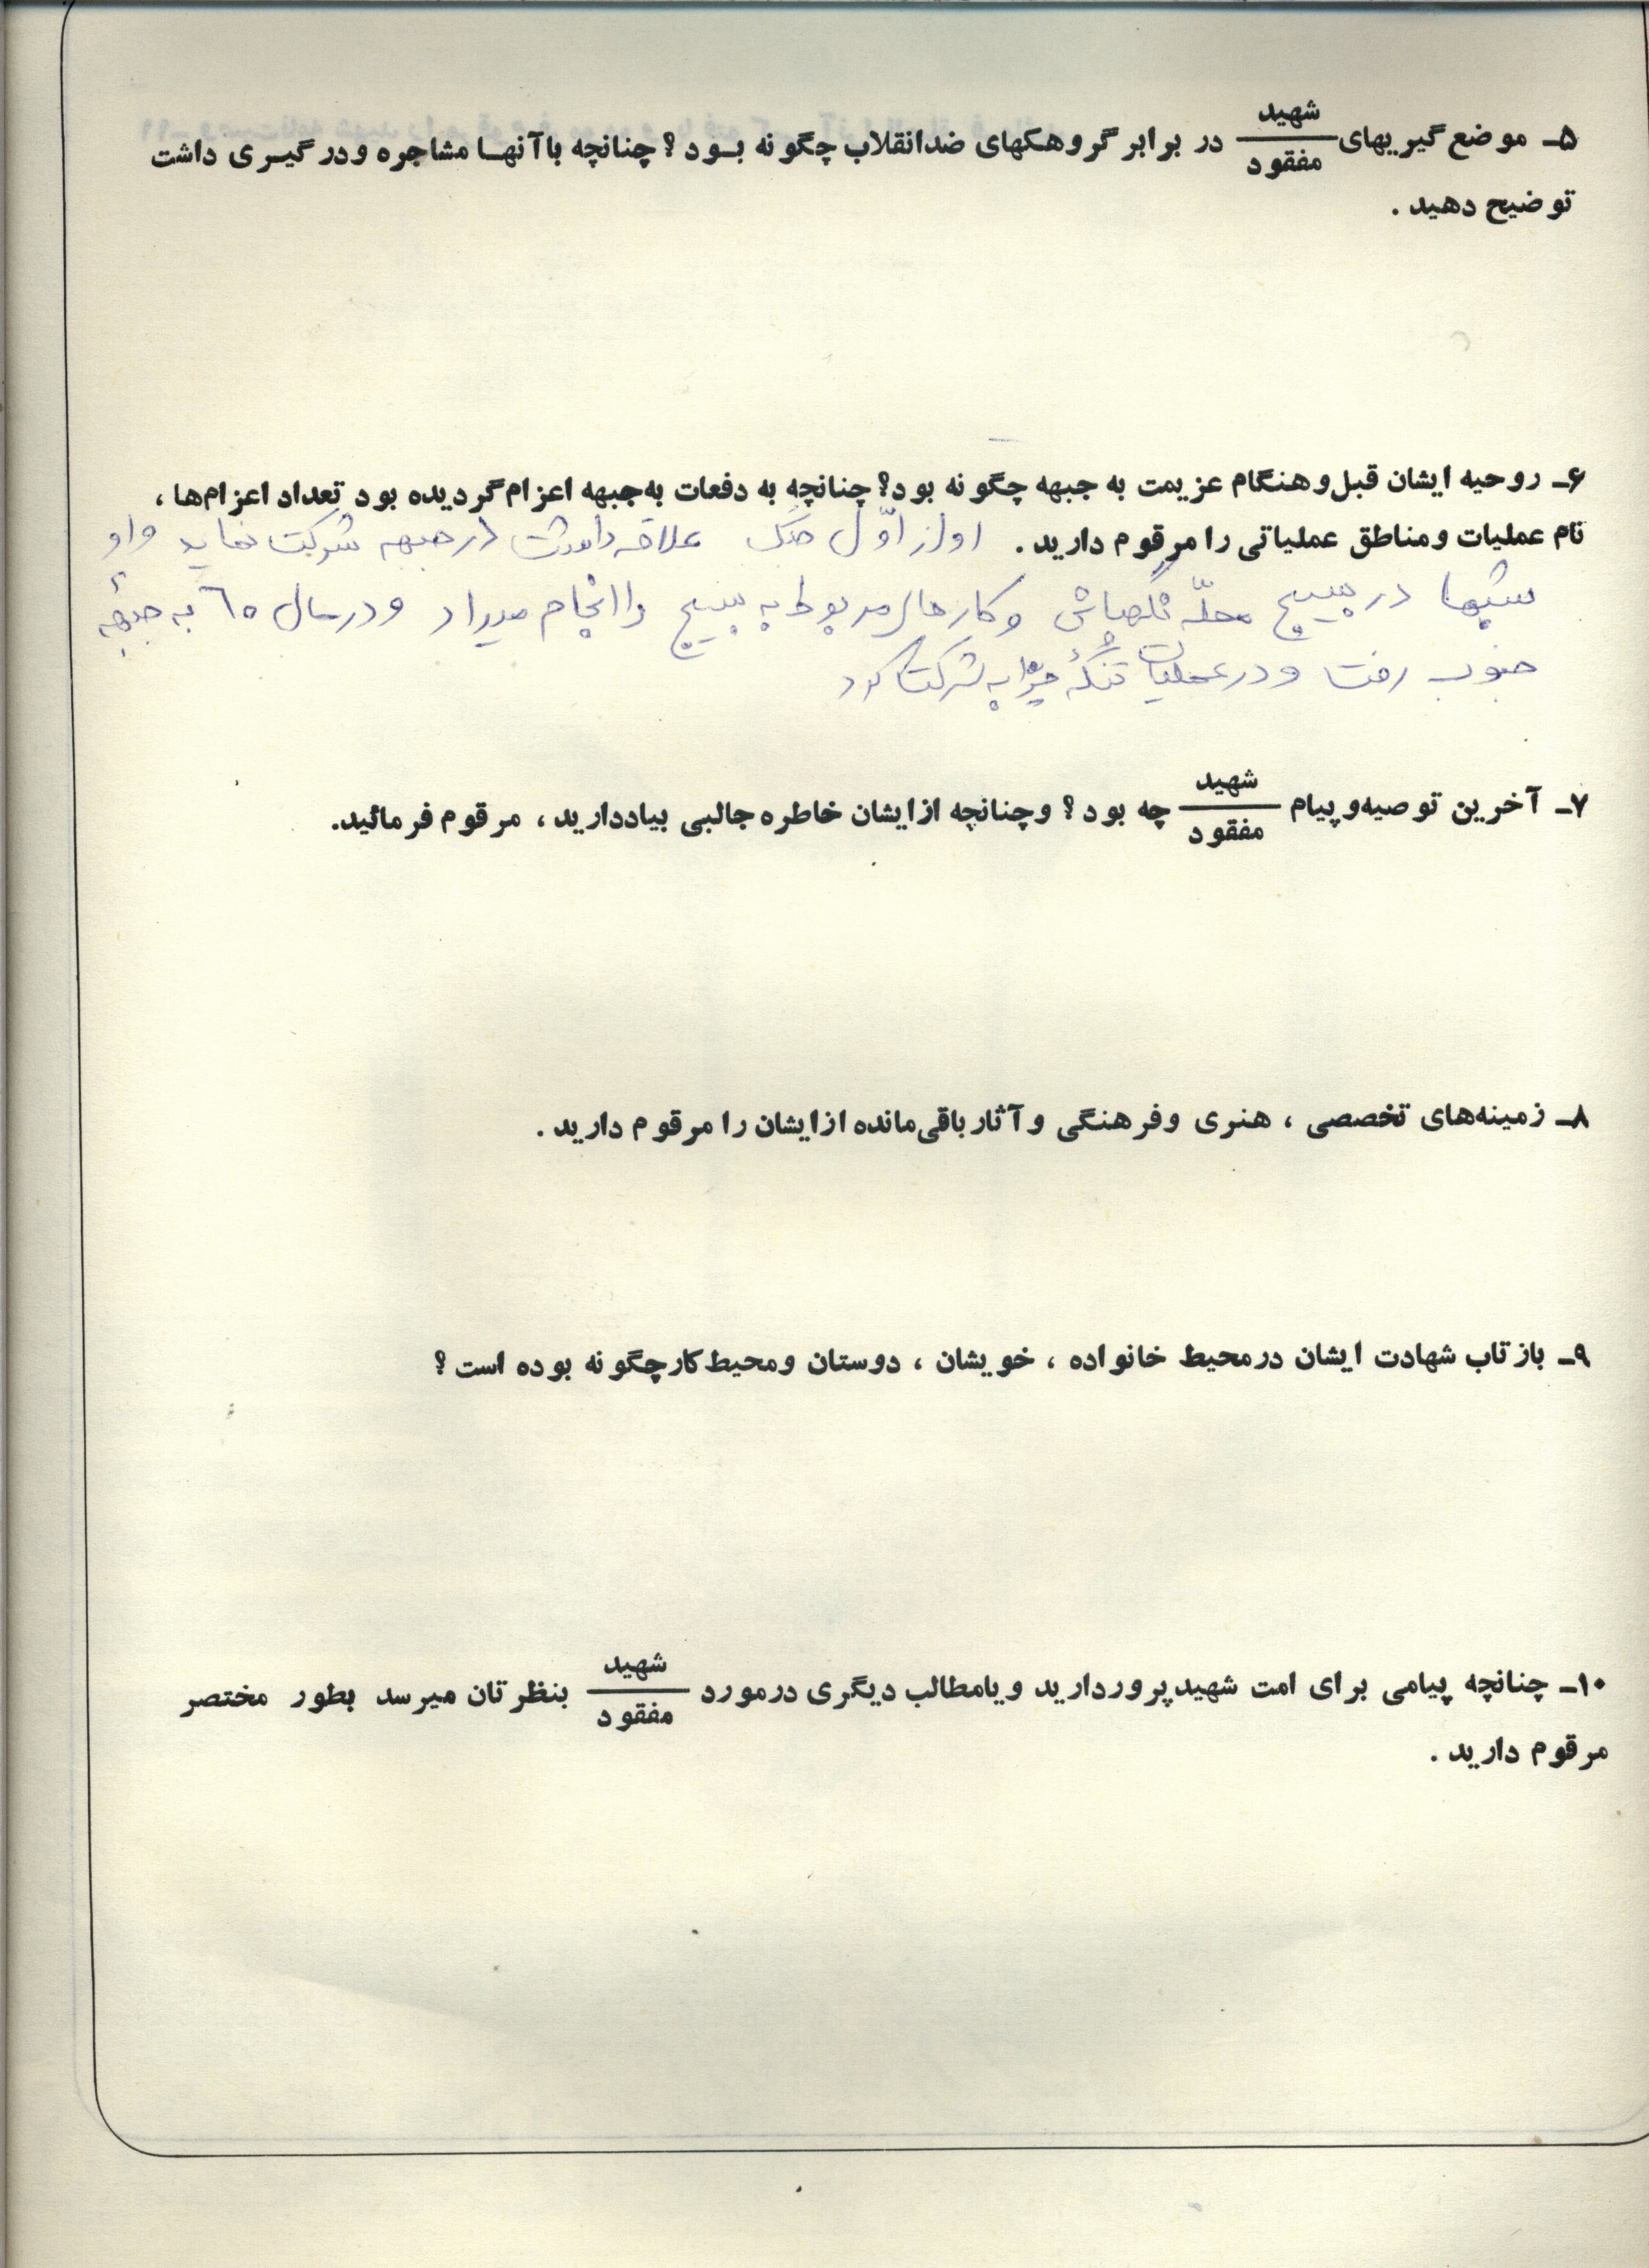 ۵ـ موضع گیریهای شهید/مفقود در برابر گروهکهای ضدانقلاب چگونه بود؟ چنانچه باآنها مشاجره ودرگیری داشت
توضیح دهید .
۶ـ روحیه ایشان قبل وهنگام عزیمت به جبهه چگونه بود؟ چنانچه به دفعات به‌جبهه اعزام گردیده بود تعداد اعزام‌ها ،
نام عملیات ومناطق عملیاتی را مرقوم دارید . او از اوّل جنگ علاقه داشت در جبهه شرکت نماید و او
شبها در بسیج محلّه نگهبانی و کارهای مربوط به بسیج را انجام میداد و در سال ٦٠ به جبههٔ
جنوب رفت و در عملیات تنگهٔ چزابه شرکت کرد
۷ـ آخرین توصیه‌وپیام شهید/مفقود چه بود؟ وچنانچه ازایشان خاطره جالبی بیاددارید ، مرقوم فرمائید.
۸ـ زمینه‌های تخصصی ، هنری وفرهنگی وآثار باقی‌مانده ازایشان را مرقوم دارید .
۹ـ بازتاب شهادت ایشان درمحیط خانواده ، خویشان ، دوستان ومحیط کارچگونه بوده است ؟
۱۰ـ چنانچه پیامی برای امت شهیدپروردارید ویامطالب دیگری درمورد شهید/مفقود بنظرتان میرسد بطور مختصر
مرقوم دارید .